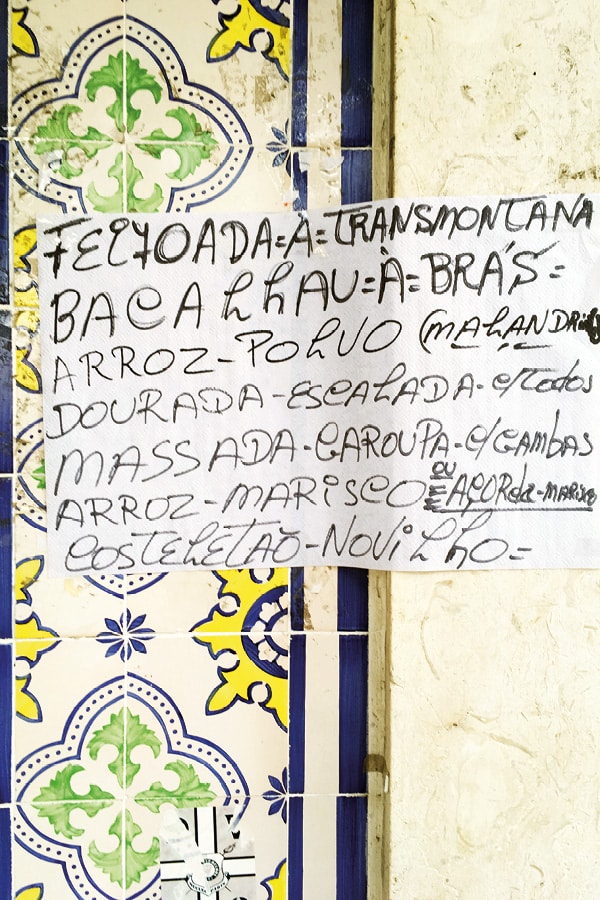 FEIJOADA=À=TRANSMONTANA
BACALHAU=À=BRÁS=
ARROZ-POLVO (MALANDRI
DOURADA-ESCALADA-C/TODOS
MASSADA-GAROUPA-C/GAMBAS
ARROZ-MARISCO OU AÇORda-MARISCO
COSTELETÃO-NOVILHO=